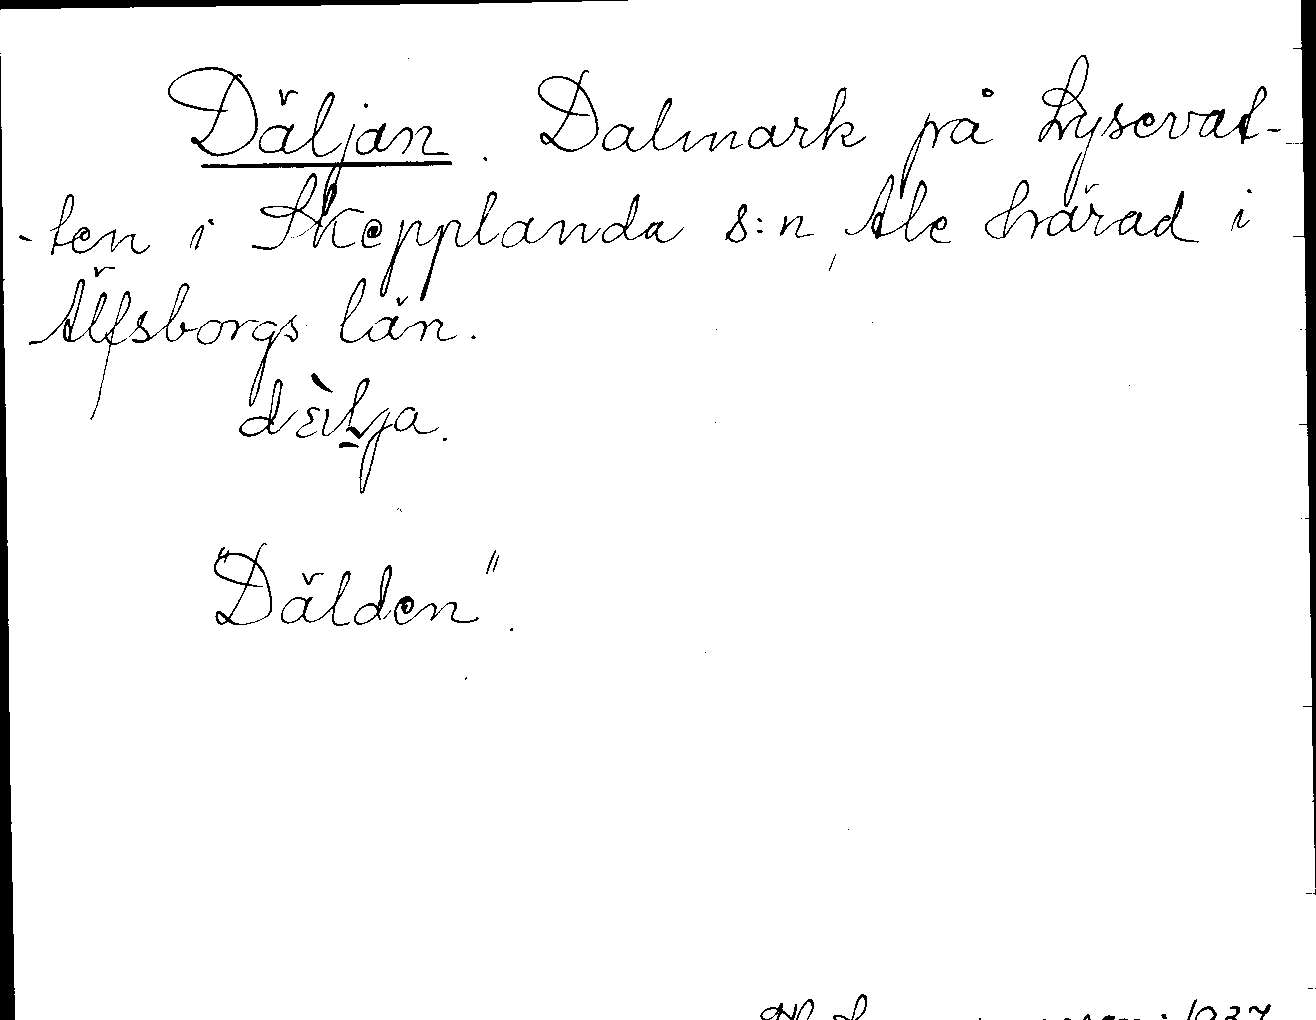 Däljan. Dalmark på Lysevat-
-ten i Skepplanda s:n, Ale härad i
Älfsborgs län.
dὲιlja.
"Dälden".
1937